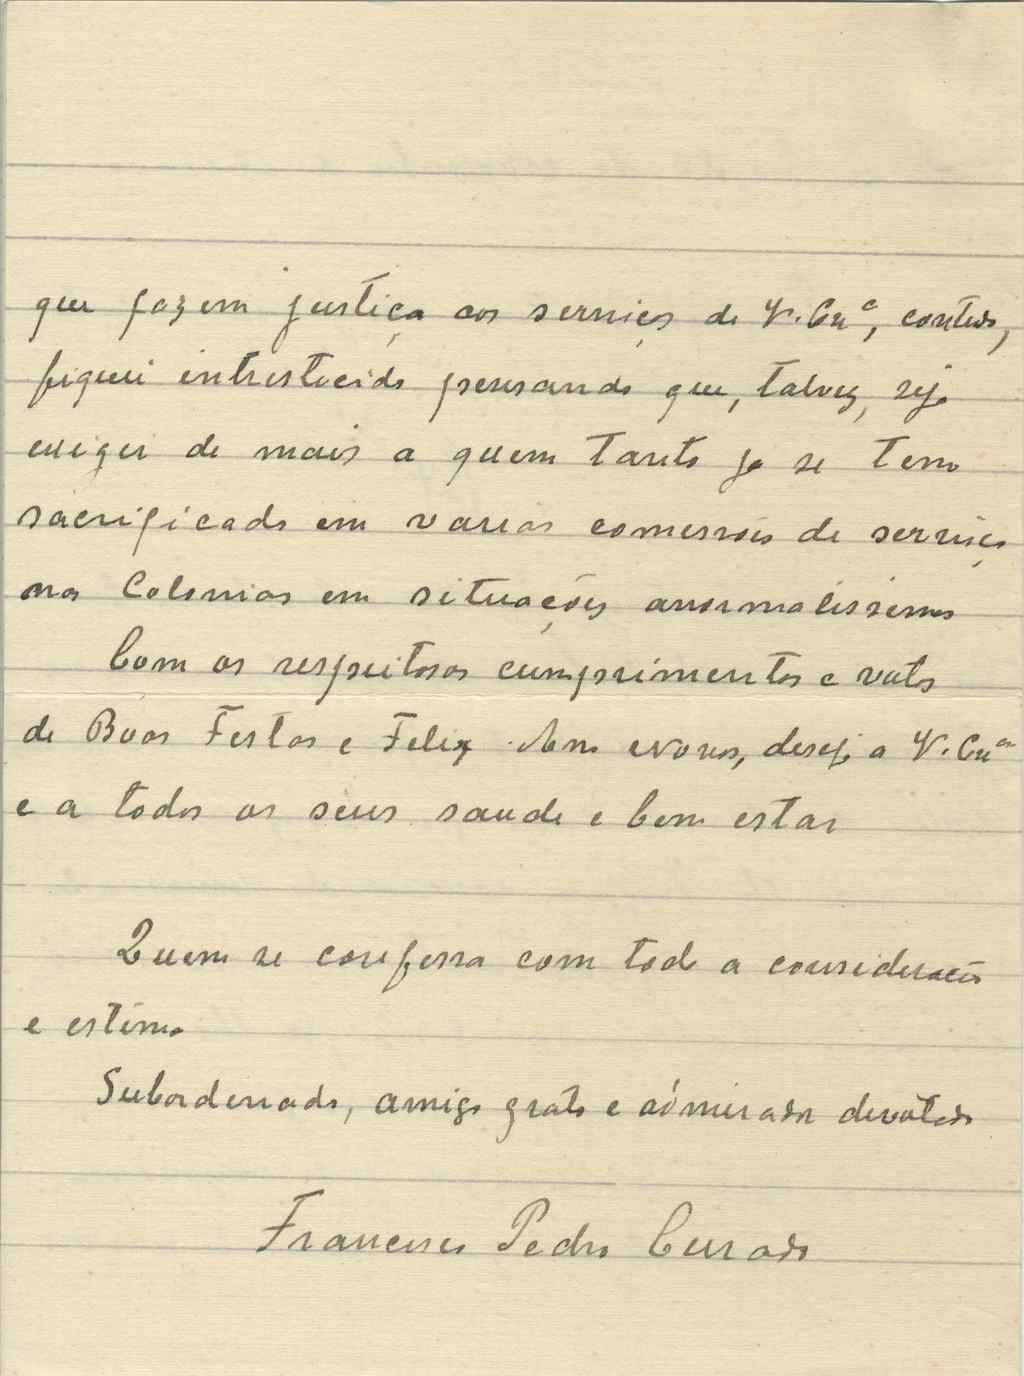 que fazem justiça aos serviços de V. Exª, contudo,
fiquei intristecido pensando que, talvez, seja
exigir de mais a quem tanto já se tem
sacrificado em varias comissões de serviço
nas Colonias em situações anormalissimas
Com os respeitosos cumprimentos e votos
de Boas Festas e Feliz Ano Novo, desejo a V. Exª
e a todos os seus saude e bem estar
Quem se confessa com toda a consideração
e estima
Subordinado, amigo grato e admirador devotado
Francisco Pedro Curado